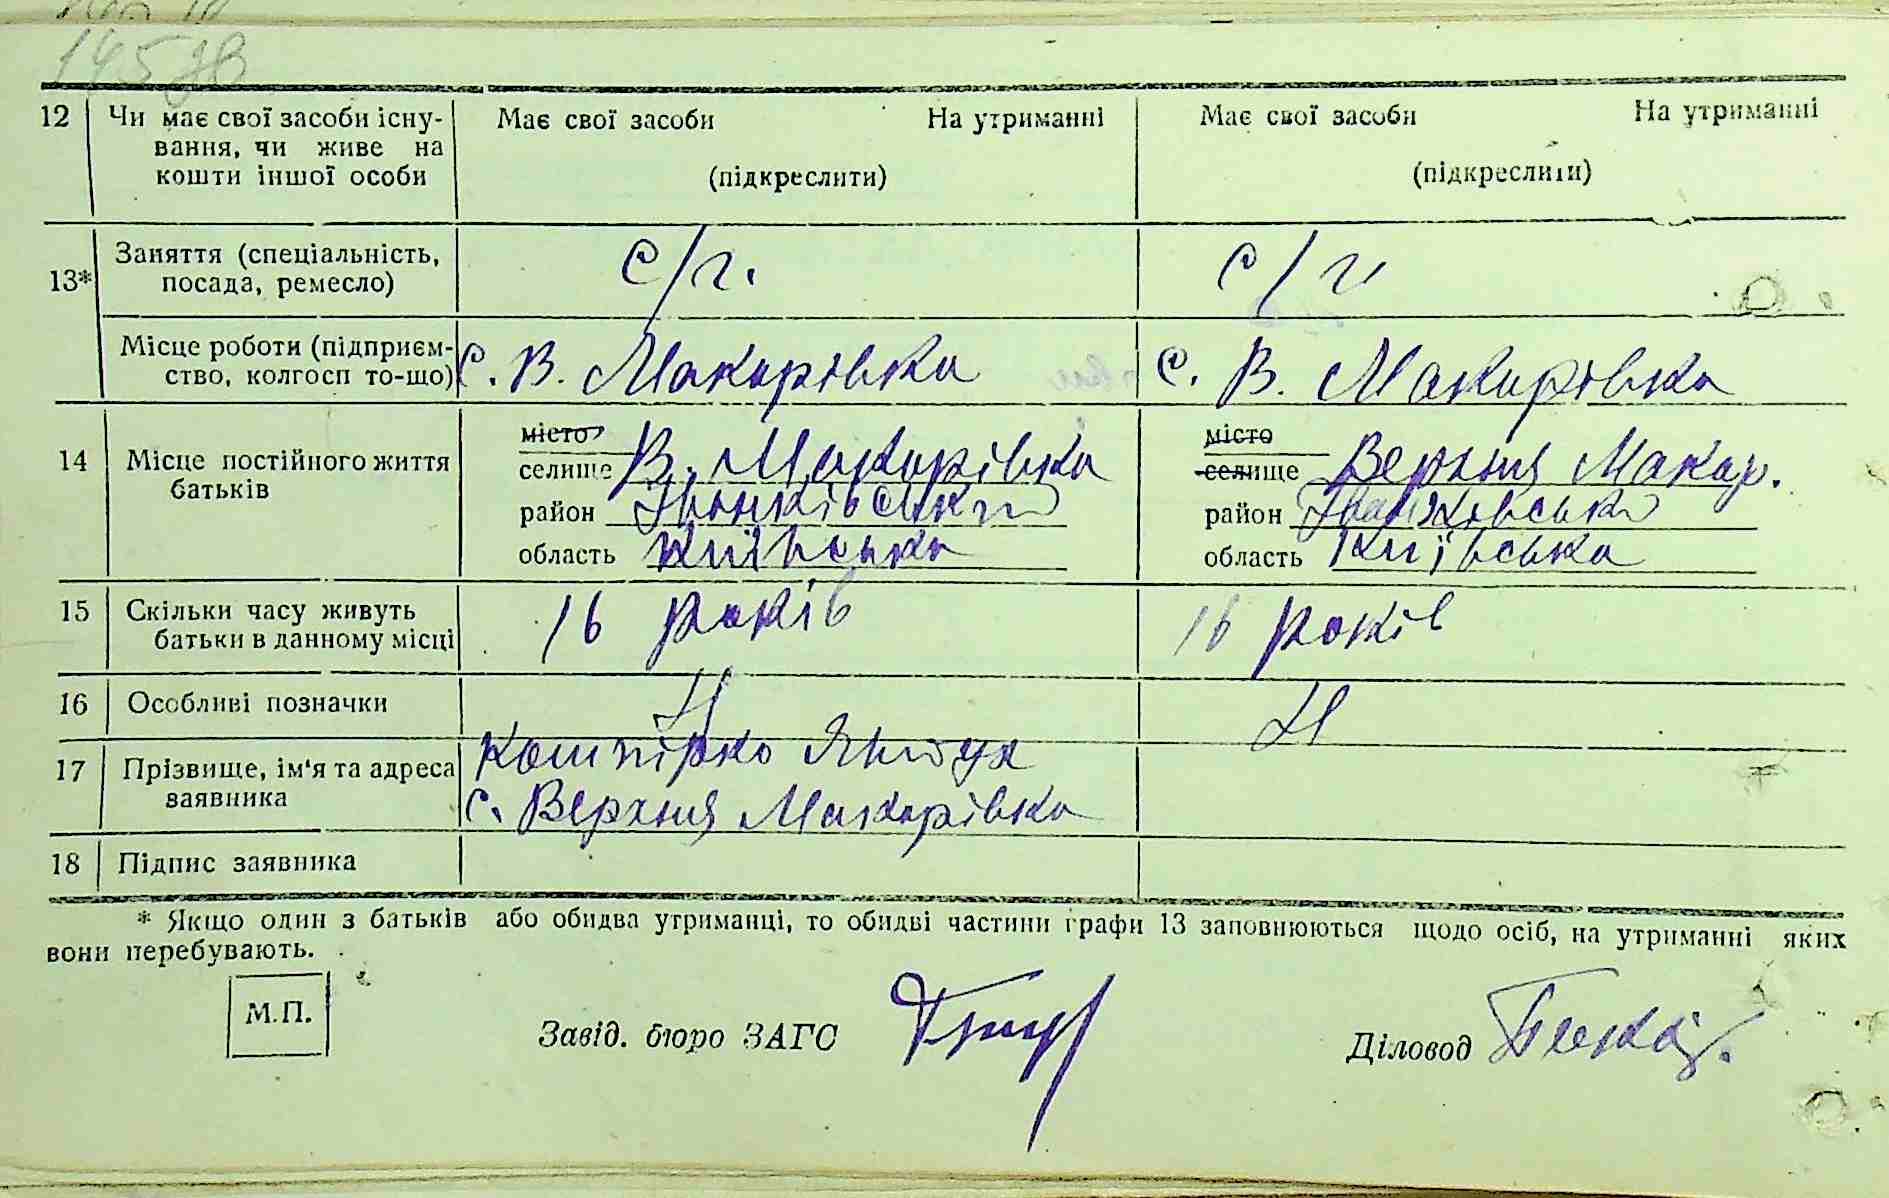 145
12 Чи має свої засоби існу- Має свої засоби На утриманні Має свої засоби На утриманні
вання, чи живе на
кошти іншої особи (підкреслити) (підкреслити)
13* Заняття (спеціальність, с/г. с/г.
посада, ремесло)
Місце роботи (підприєм- с. В. Макарівка с. В. Макарівка
ство, колгосп то-що)
14 Місце постійного життя місто місто
батьків селище В. Макарівка селище Верхня Макар.
район Іванківський район Іванківський
область київська область Київська
15 Скільки часу живуть 16 років 16 років
батьки в данному місці
16 Особливі позначки Н Н
17 Прізвище, ім'я та адреса Кошпірко
заявника с. Верхня Макарівка
18 Підпис заявника
* Якщо один з батьків або обидва утриманці, то обидві частини графи 13 заповнюються щодо осіб, на утриманні яких
вони перебувають.
М.П.
Завід. бюро ЗАГС Діловод